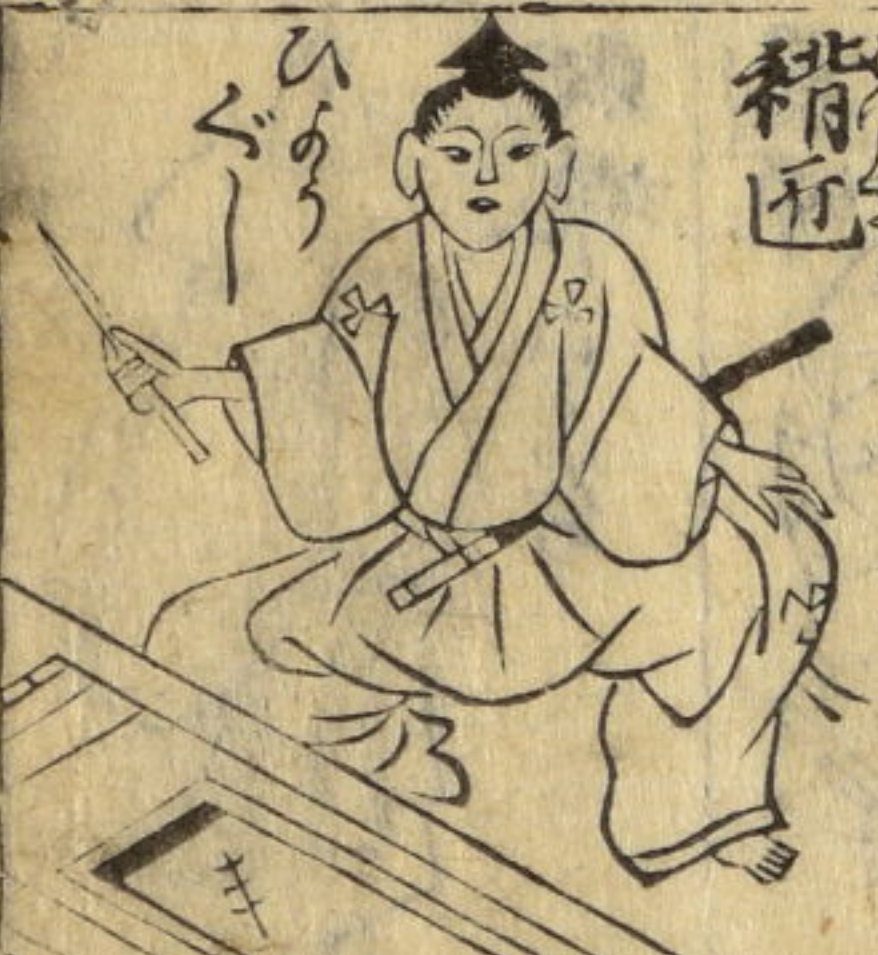 褙匠
ひよう
ぐし